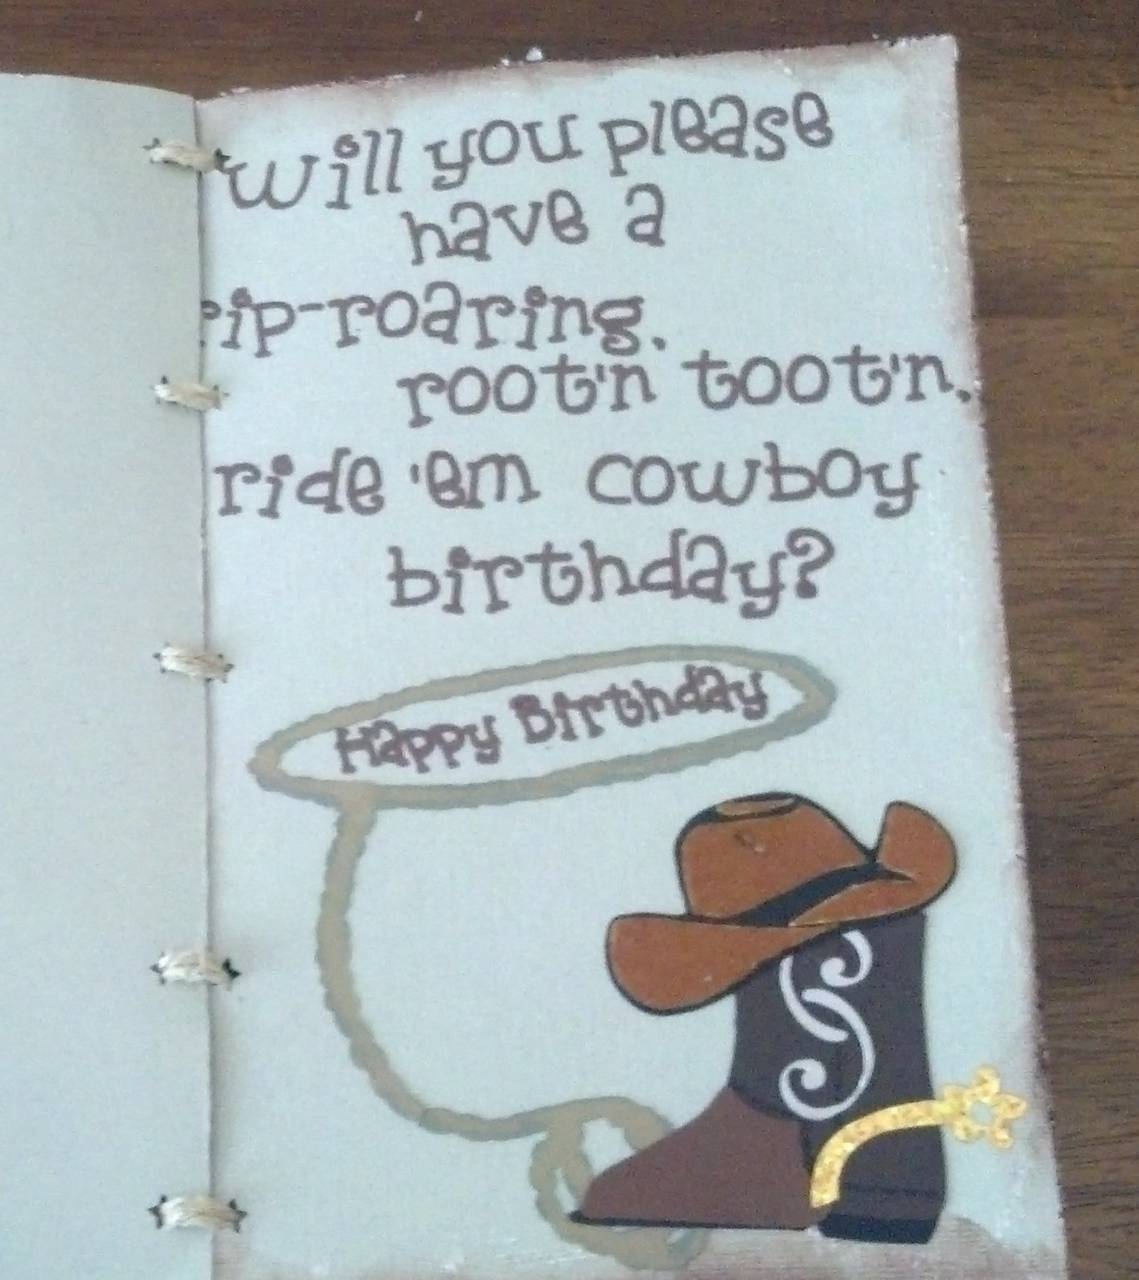 will you please
have a
rip-roaring.
root'n toot'n.
ride 'em cowboy
birthday?
Happy Birthday